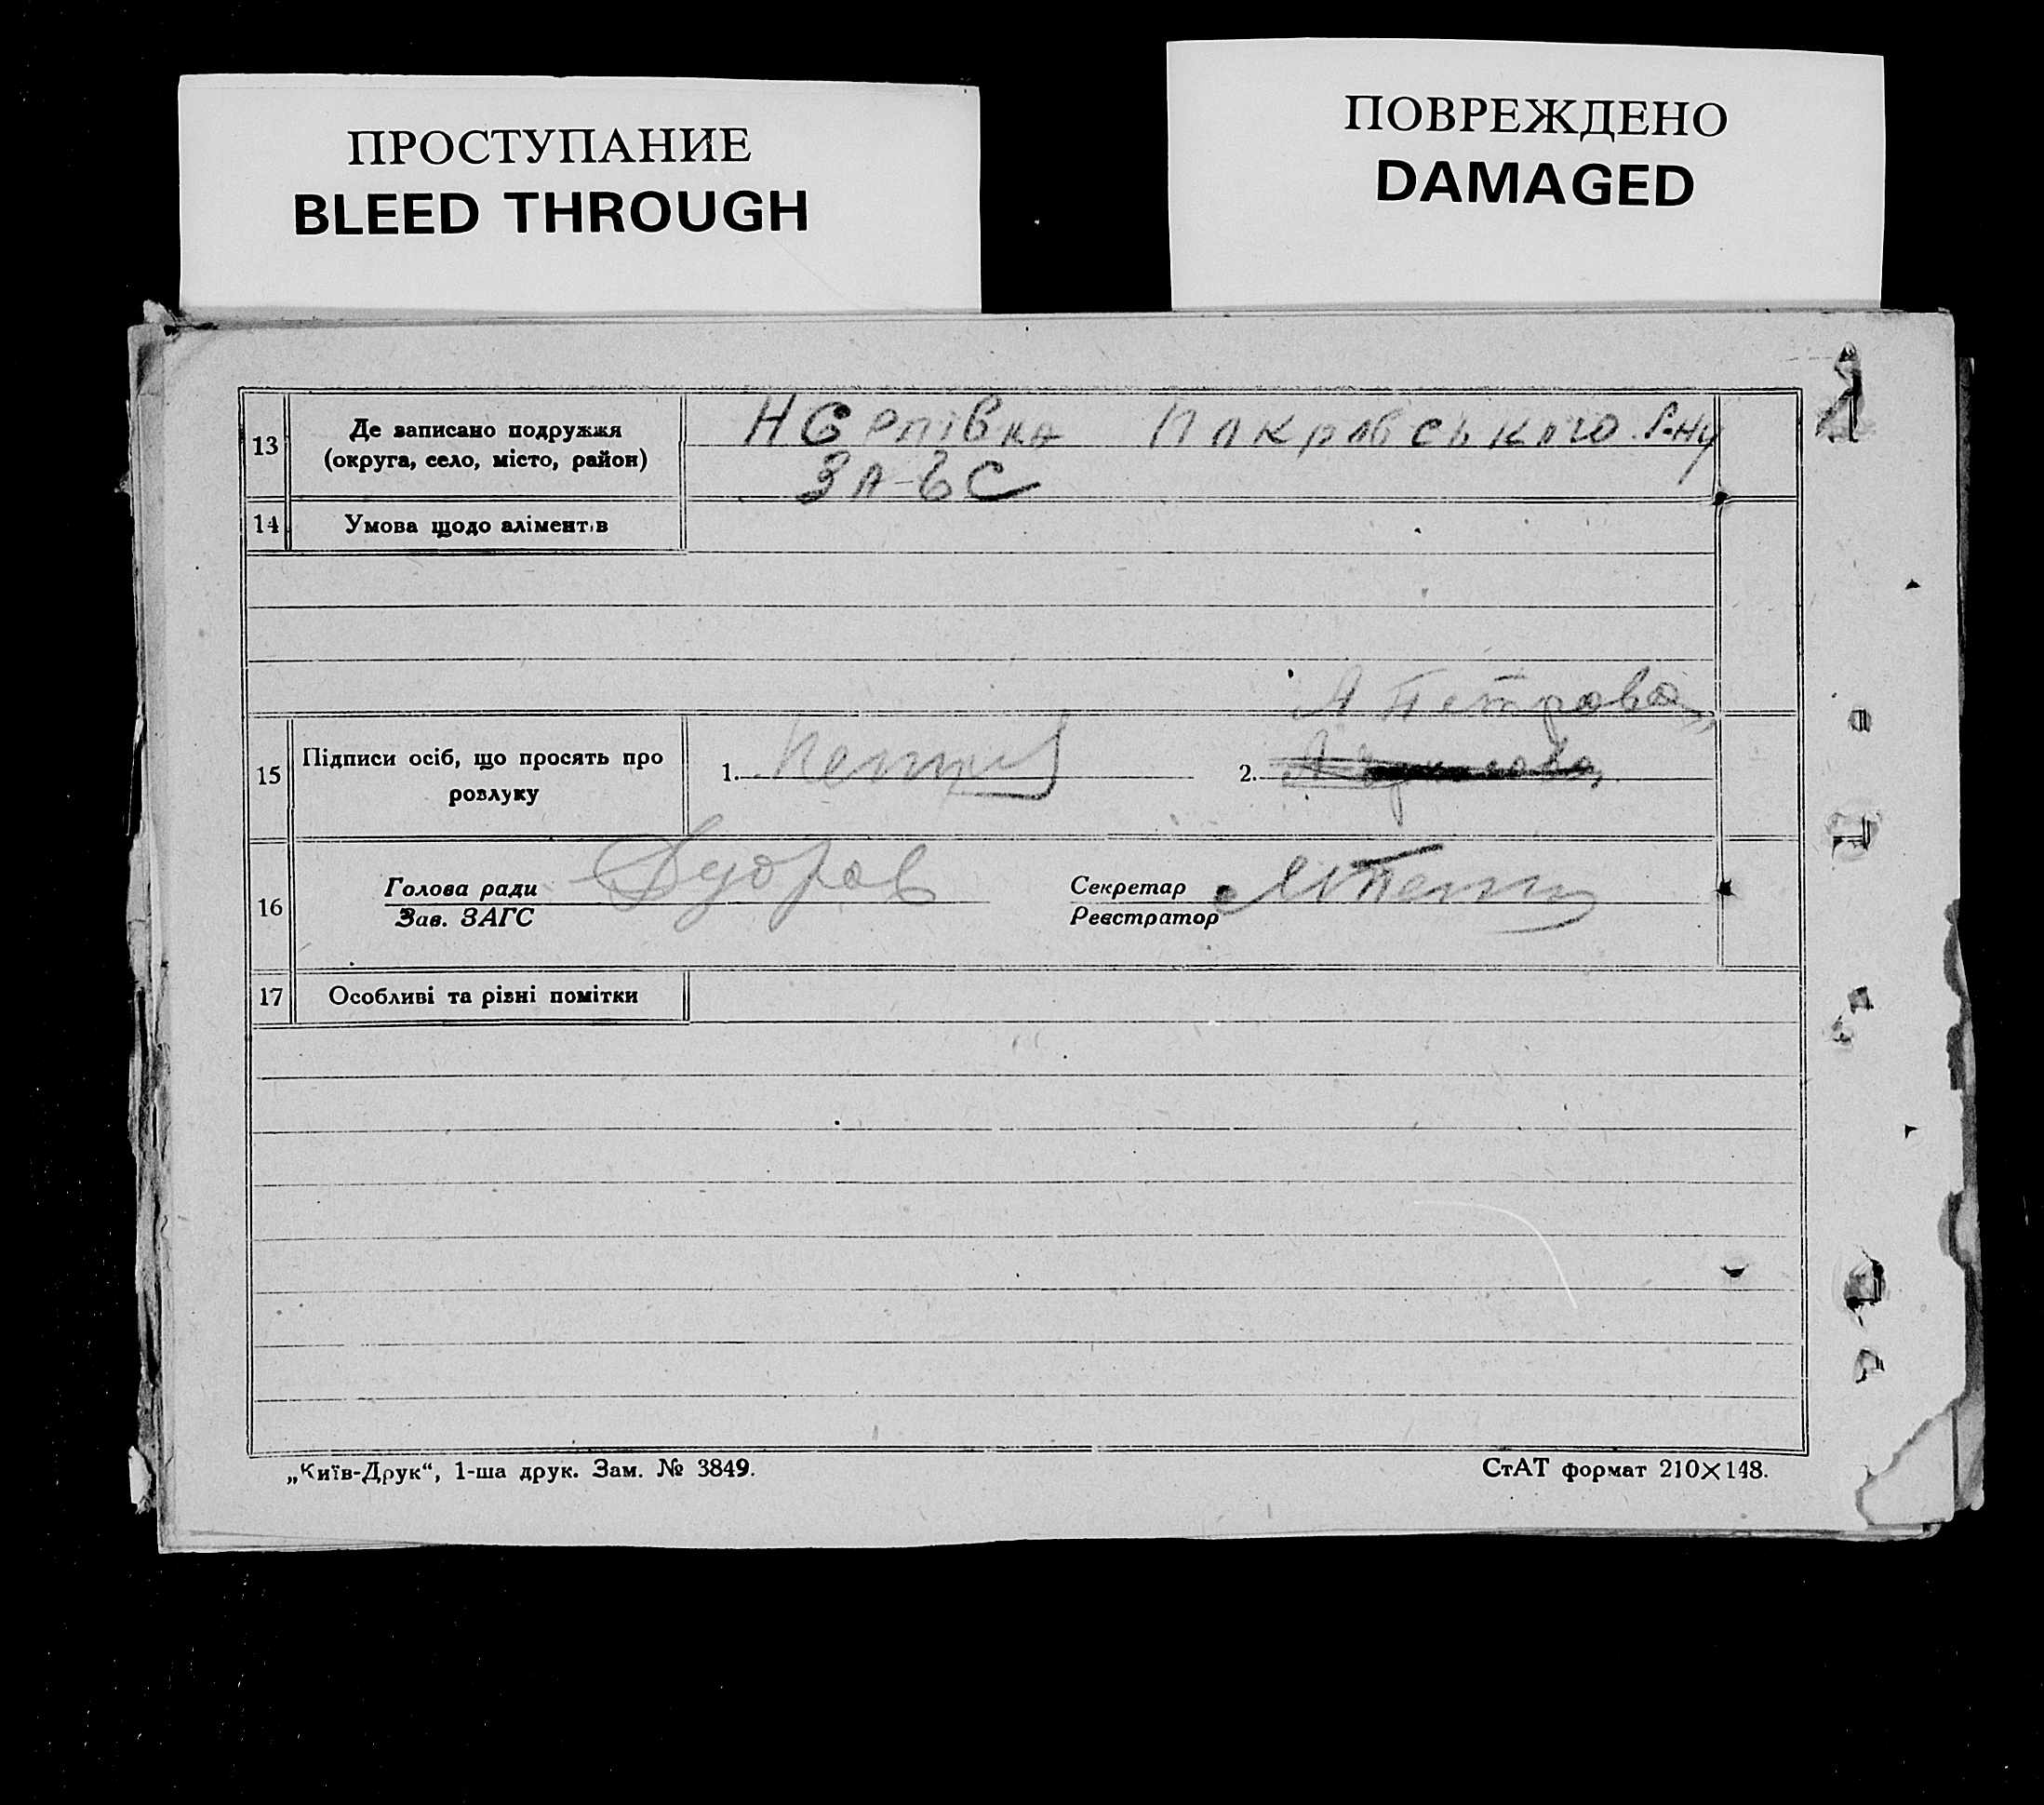 ПРОСТУПАНИЕ
BLEED THROUGH
ПОВРЕЖДЕНО
DAMAGED
13
Де записано подружжя
(округа, село, місто, район)
Покровського р-ну
14
Умова щодо аліментів
А Петрова
15
Підписи осіб, що просять про
розлуку
1.
2.
16
Голова ради
Зав. ЗАГС
Секретар
Реєстратор
17
Особливі та різні помітки
„Київ-Друк“, 1-ша друк. Зам. № 3849.
СтАТ формат 210×148.